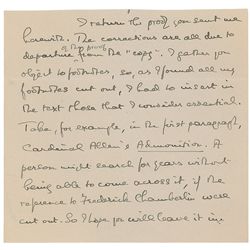 I return the proof you sent me
herewith. The corrections are all due to
departure of the proof from the "copy". I gather you
object to footnotes, so, as I found all my
footnotes cut out, I had to insert in
the text those that I consider essential.
Take, for example, in the first paragraph,
Cardinal Allen's Admonition. A
person might search for years without
being able to come across it, if the
reference to Frederick Chamberlin were
cut out. So I hope you will leave it in.